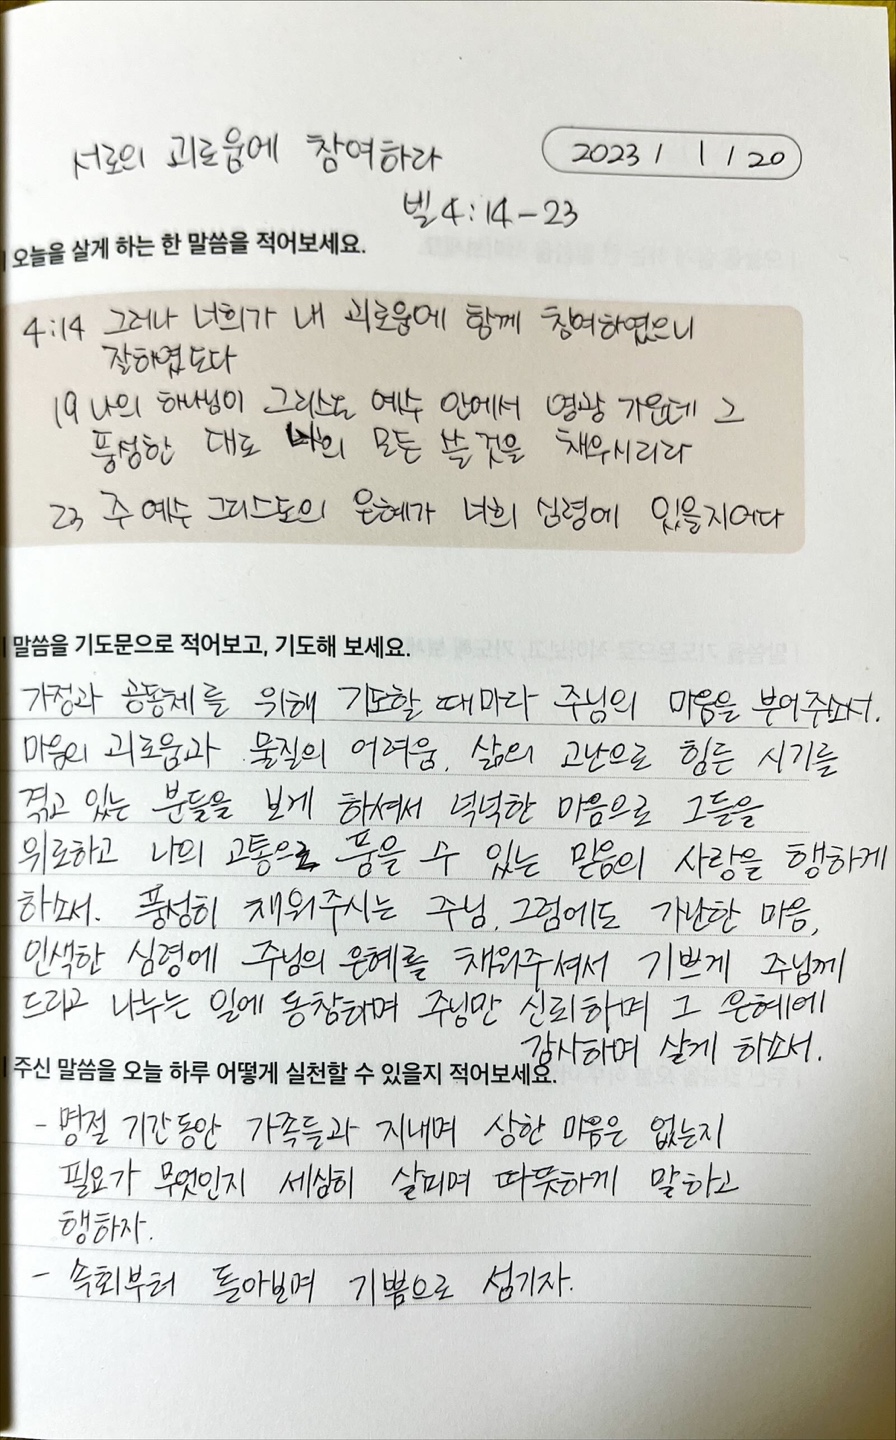 서로의 괴로움에 참여하라
2023 / 1 / 20
빌4:14-23
오늘을 살게 하는 한 말씀을 적어보세요.
4:14 그러나 너희가 내 괴로움에 함께 참여하였으니
잘하였도다
19 나의 하나님이 그리스도 예수 안에서 영광 가운데 그
풍성한 대로 의 모든 쓸 것을 채우시리라
23 주 예수 그리스도의 은혜가 너희 심령에 있을지어다
말씀을 기도문으로 적어보고, 기도해 보세요.
가정과 공동체를 위해 기도할 때마다 주님의 마음을 부어주소서.
마음의 괴로움과 물질의 어려움, 삶의 고난으로 힘든 시기를
겪고 있는 분들을 보게 하셔서 넉넉한 마음으로 그들을
위로하고 나의 고통으로 품을 수 있는 믿음의 사랑을 행하게
하소서. 풍성히 채워주시는 주님, 그럼에도 가난한 마음,
인색한 심령에 주님의 은혜를 채워주셔서 기쁘게 주님께
드리고 나누는 일에 동참하며 주님만 신뢰하며 그 은혜에
감사하며 살게 하소서.
주신 말씀을 오늘 하루 어떻게 실천할 수 있을지 적어보세요.
- 명절 기간동안 가족들과 지내며 상한 마음은 없는지
필요가 무엇인지 세심히 살피며 따뜻하게 말하고
행하자.
- 속회부터 돌아보며 기쁨으로 섬기자.